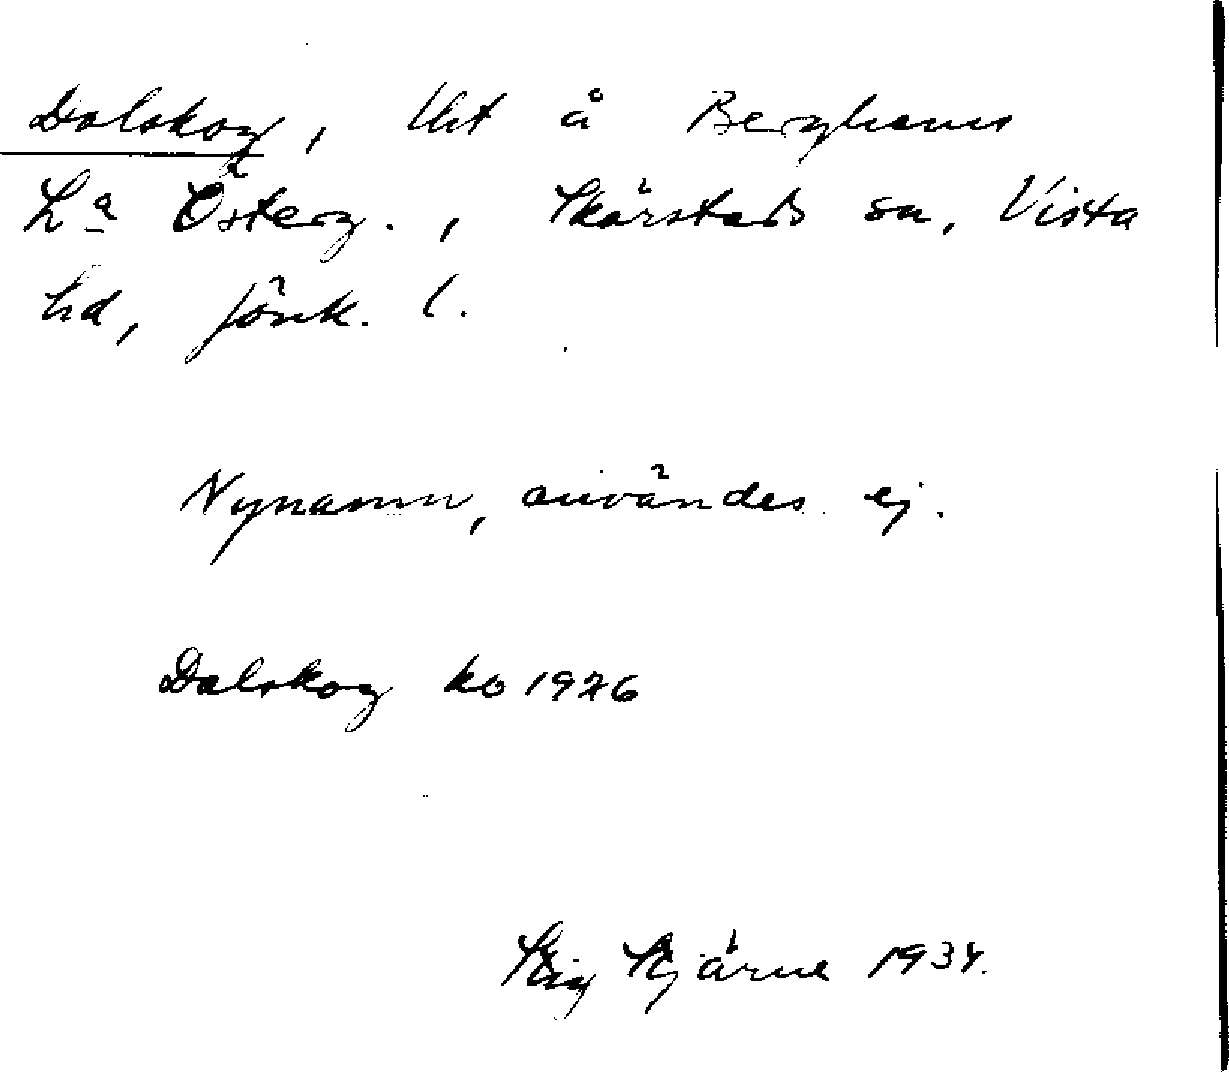 Dalskog, lht å Berghems
La Österg., Skärstads sn, Vista
hd, Jönk. l.
Nynamn, användes ej.
Dalskog ko 1926
Stig Stjärne 1934.